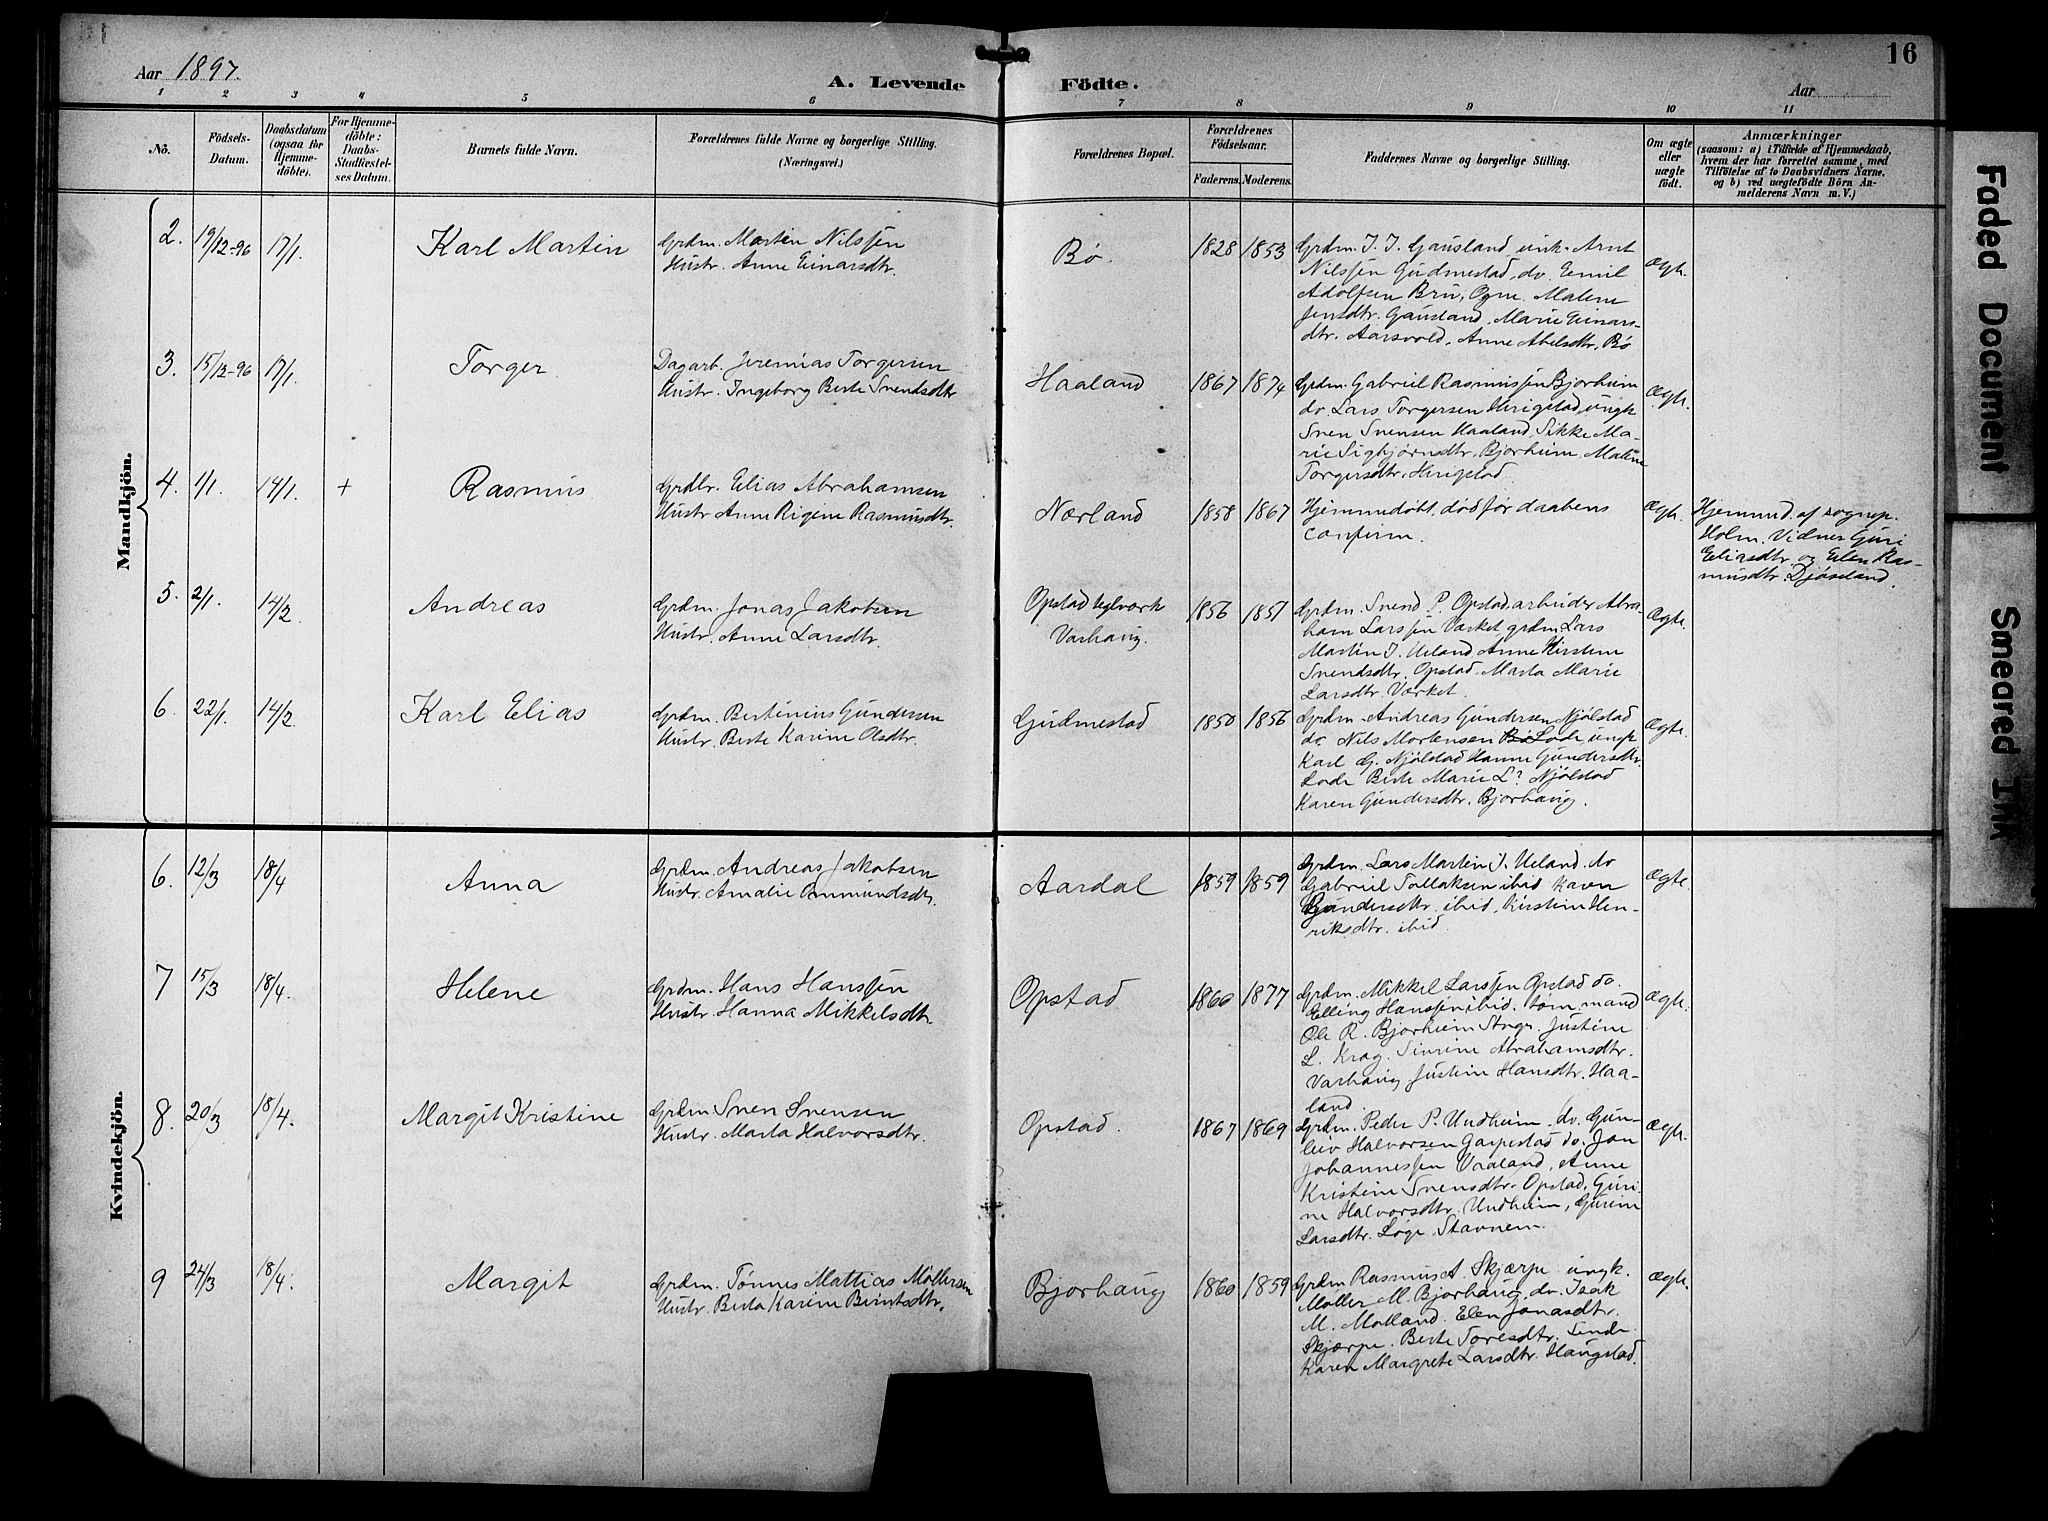 Aar 1897. A. Levende Födte. Aar 16
1 2 3 4 5 6 7 8 9 10 11
No. Födsels-Datum. Daabsdatum (ogsaa for Hjemmedöbte). For Hjemmedöbte: Daabs-Stadfæstelses Datum. Barnets fulde Navn. Forældrenes fulde Navne og borgerlige Stilling. (Næringsvei.) Forældrenes Bopæl. Forældrenes Födselsaar. Faderens. Moderens. Faddernes Navne og borgerlige Stilling. Om ægte eller uægte födt. Anmærkninger (saasom: a) i Tilfælde af Hjemmedaab, hvem der har forrettet samme, med Tilföielse af to Daabsvidners Navne, og b) ved uægtefödte Börn Anmelderens Navn m. V.)
Mandkjön.
2. 19/12-96 17/1. Karl Martin
Grdm. Martin Nilssen
Hustr. Anne Einarsdtr.
Bø. 1828 1853
Grdm. J. J. Gausland, unk. Arnt
Nilssen Gudmestad, do. Emil
Adolfsen Bru, Ogne. Malene
Jensdtr. Gausland, Marie Einars-
dtr. Aarsvold, Anne Abelsdtr. Bø
Ægte.
3. 15/12-96 17/1. Torger
Dagarb. Jeremias Torgersen
Hustr. Ingeborg Berte Svendsdtr
Haaland 1867 1874
Grdm. Gabriel Rasmussen Bjorheim
do. Lars Torgersen Hrigstad, ungk
Sven Svensen Haaland, Sikke Ma-
rie Sigbjørnsdtr. Bjorheim, Malene
Torgersdtr. Hrigstad
Ægte.
4. 1/1. 14/1. + Rasmus
Grdbr. Elias Abrahamsen
Hustr Anne Rigene Rasmusdtr.
Nærland 1858 1867
Hjemmedøbt, død før daabens
confirm.
Ægte.
Hjemmed. af sognep.
Holm. Vidner Guri
Eliasdtr. og Elen Ras-
musdtr. Djøseland.
5. 2/1. 14/2. Andreas
Grdm. Jonas Jakobsen
Hustr. Anne Larsdtr.
Opstad teglværk
Varhaug.
1856 1851
Grdm. Svend P. Opstad, arbeider Abra-
ham Larssen Værket, grdm. Lars
Martin J. Ueland, Anne Kirstine
Svendsdtr. Opstad, Marta Marie
Larsdtr. Værket.
Ægte.
6. 22/1. 14/2 Karl Elias
Grdm. Bertinius Gundersen
Hustr. Berte Karine Olsdtr.
Gudmestad 1850 1856
Grdm. Andreas Gundersen Njølstad
do. Nils Mortensen Lode, ungk
Karl G. Njølstad Hanne Gundersdtr.
Lode Berte Marie L? Njølstad
Karen Gundersdtr. Bjorhaug.
Ægte.
Kvindekjön.
6. 12/3 18/4 Anna
Grdm. Andreas Jakobsen
Hustr. Amalie Ommundsdtr.
Aardal 1859 1859
Grdm. Lars Martin J. Ueland. do
Gabriel Tollaksen ibid Karen
Gundersdtr. ibid, Kirstine Hen-
riksdtr. ibid.
Ægte
7 15/3 18/4. Helene
Grdm. Hans Hanssen
Hustr. Hanna Mikkelsdtr.
Opstad 1860 1877
Grdm. Mikkel Larssen Opstad do.
Elling Hanssen ibid. tømmand
Ole R. Bjorheim Stngr. Justine
L. Krag. Sirine Abrahamsdtr.
Varhaug Justine Hansdtr. Haa-
land
Ægte.
8. 20/3 18/4. Margit Kristine
Grdm Sven Svensen
Hustr. Marta Halvorsdtr.
Opstad. 1867 1869
Grdm. Peder P. Undheim. do. Gun-
leiv Halvorsen Garpestad do. Jon
Johannessen Vaaland, Anne
Kristine Svensdtr. Opstad, Guri-
ne Halvorsdtr. Undheim, Gurine
Larsdtr. Løge Stavnem.
Ægte.
9 24/3 18/4. Margit
Grdm. Tønnes Mattias Møllersen
Hustr. Berta Karine Berntsdtr.
Bjorhaug 1860 1859
Grdm Rasmus A. Skjærpe ungk.
Møller M. Bjorhaug, do. Isak
M. Motland. Elen Jonasdtr.
Skjærpe. Berte Toresdtr. Linde
Karen Margrete Larsdtr. Haugstad.
Ægte.
Faded Document
Smeared Ink